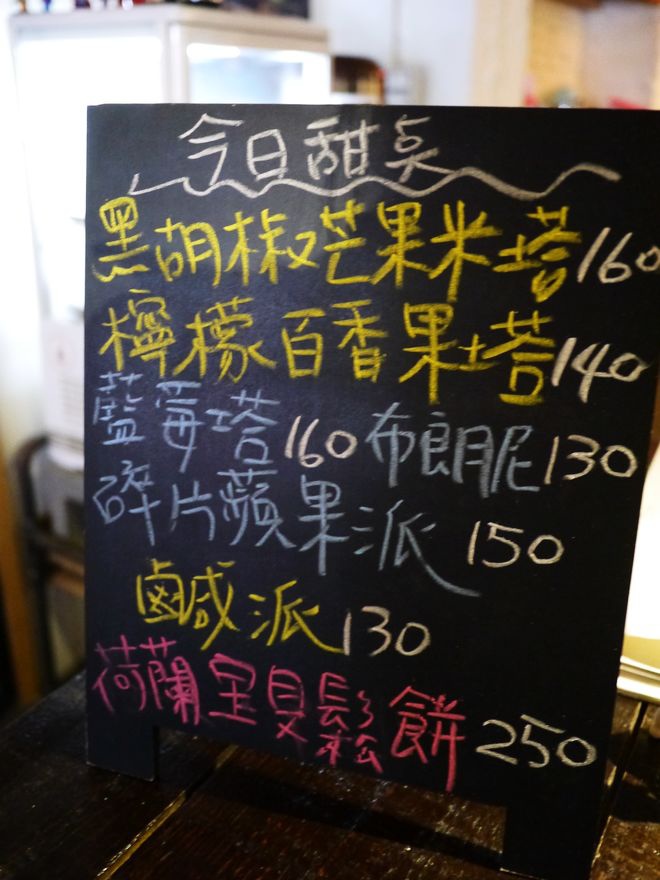 今日甜点
黑胡椒芒果米塔160
檸檬百香果塔140
藍莓塔160 布朗尼130
碎片蘋果派 150
鹹派130
荷蘭宝貝鬆餅250